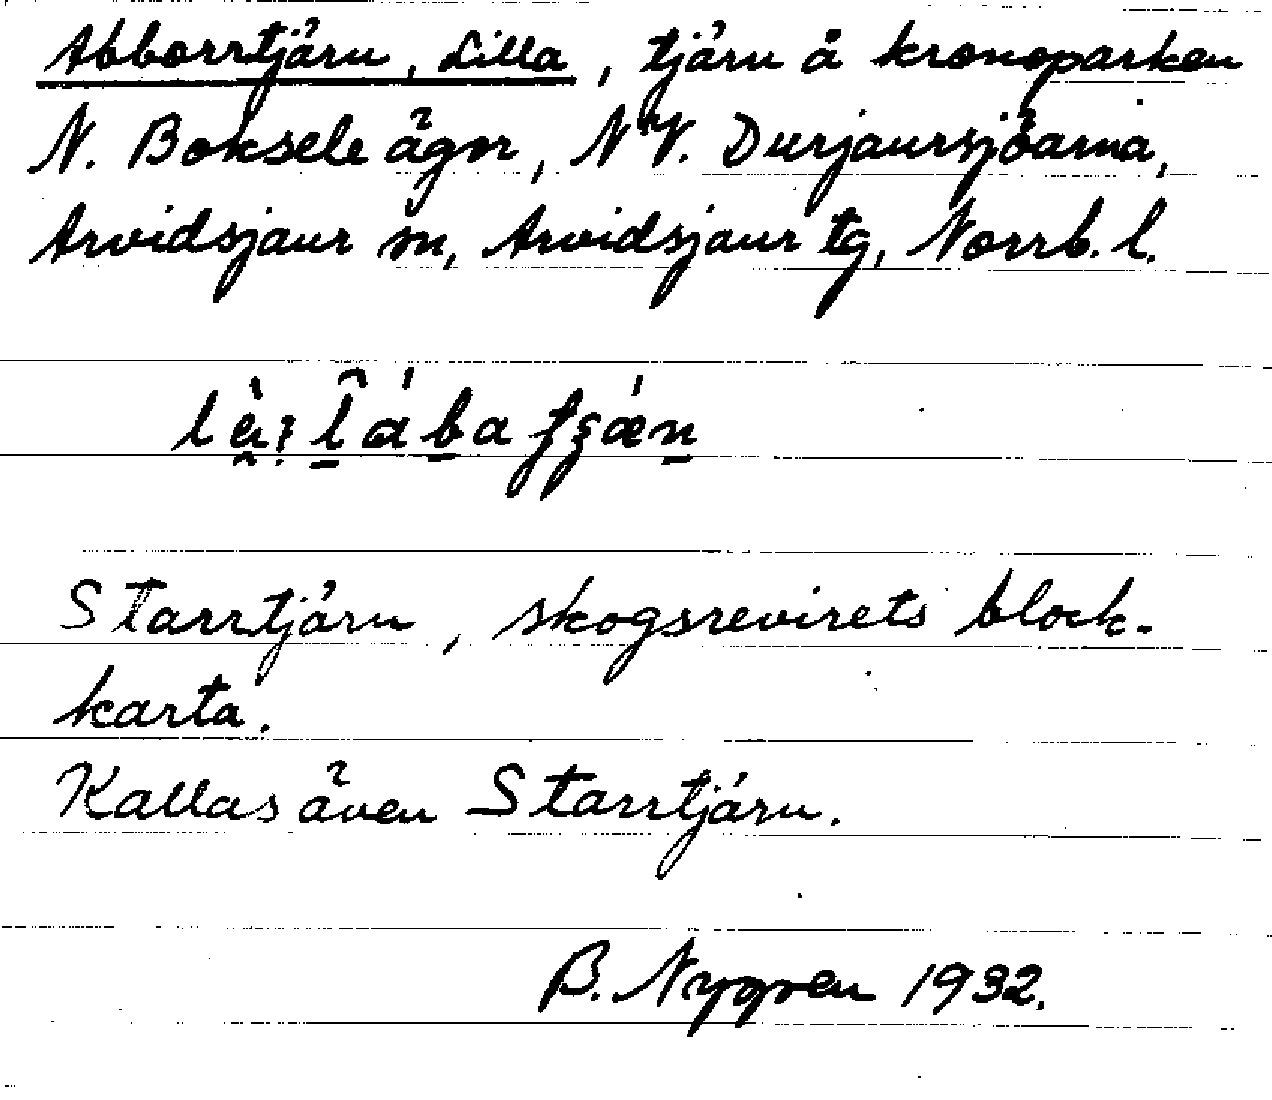 Abborrtjärn, Lilla, tjärn å kronoparken
N. Boksele ägor, NV. Durjaursjöarna,
Arvidsjaur sn, Arvidsjaur tg, Norrb. l.
Starrtjärn, skogsrevirets block-
karta.
Kallas även Starrtjärn.
B. Nygren 1932.